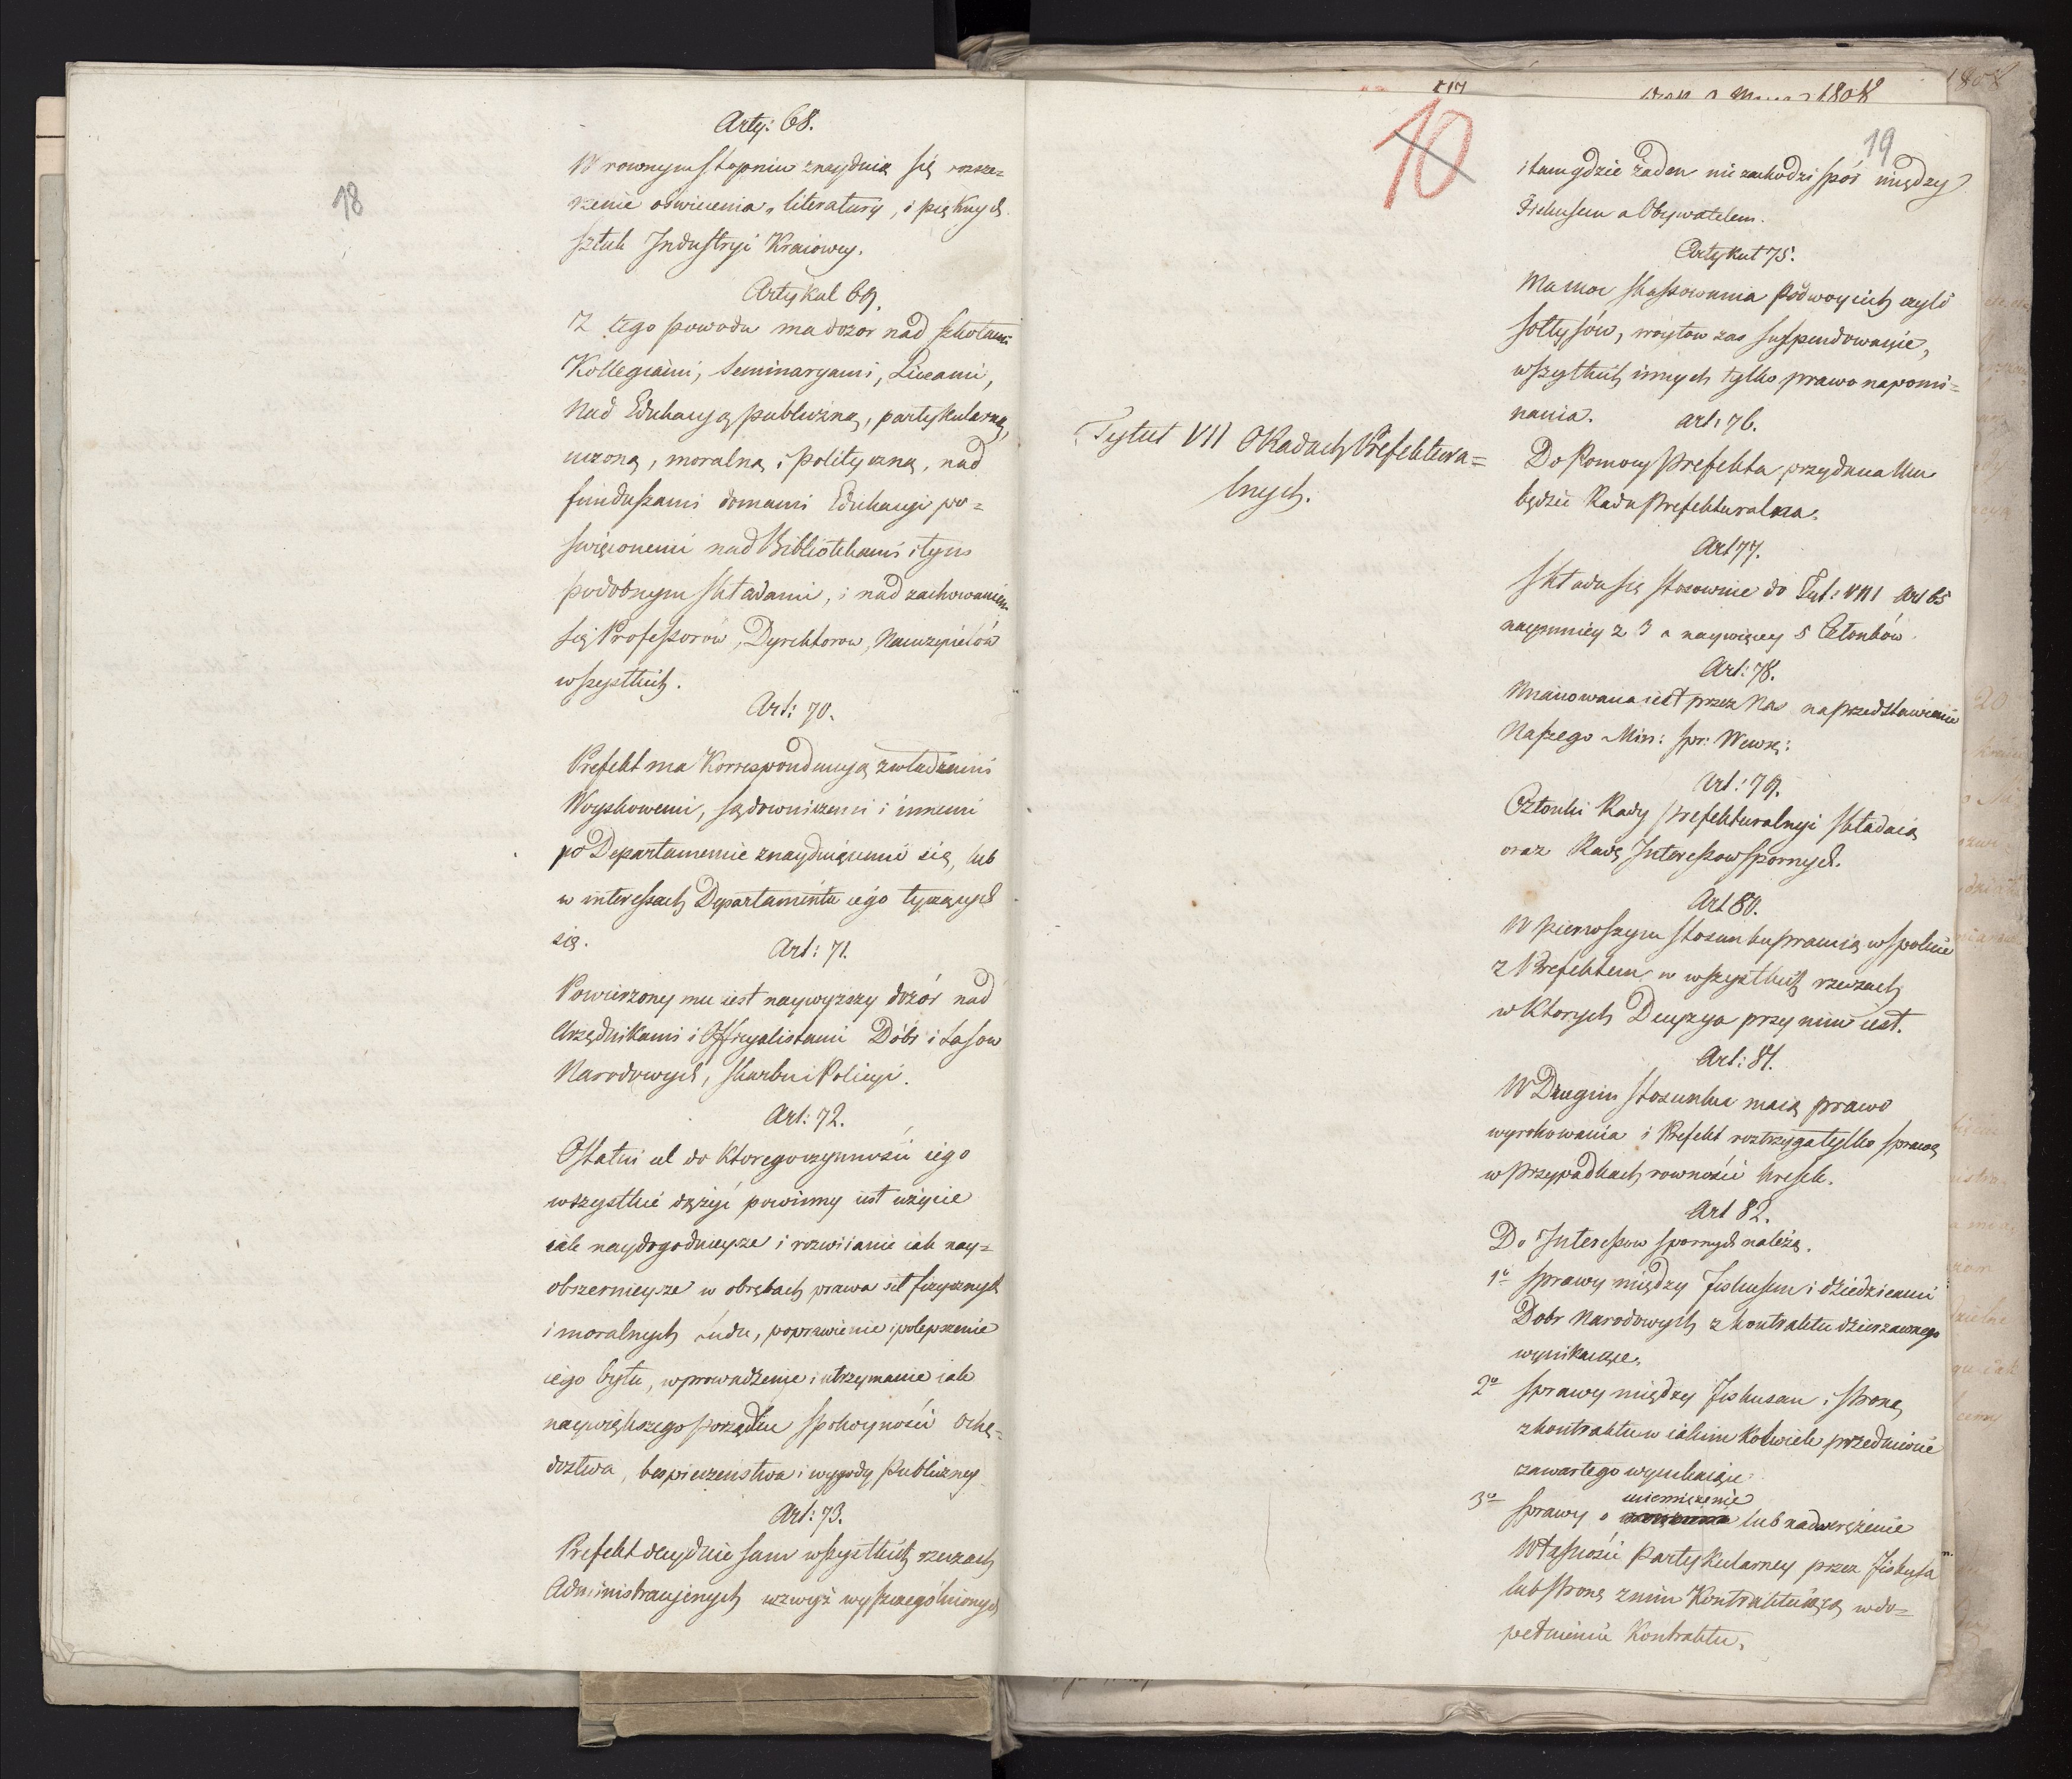 18
Arty: 68.
W rownym stopniu znayduią się rosze=
rzenie oswiecenia, literatury, i pięknych
sztuk Industryi Kraiowey.
Artykul 69.
Z tego powodu ma dozor nad szkołami
Kollegiami, Seminaryami, Liceami,
nad Edukacyą publiczną, partykularną,
uczoną, moralną i polityczną, nad
funduszami domami Edukacyi po=
swięconemi nad Bibliotekami i tym
podobnym składami, i nad zachowaniem
się Professorów, Dyrektorow, Nauczycielów
wszystkich.
Art: 70.
Prefekt ma Korrespondencyą z władzami
Woyskowemi, sądowniczemi i innemi
po Departamencie znayduiącemi się, lub
w interessach Departamentu iego tyczących
się.
Art: 71.
Powierzony mu iest naywyzszy dozór nad
Urzędnikami i Officyalistami Dóbr i Lasow
Narodowych, skarbu i Policyi.
Art: 72.
Ostatni cel do ktorego czynności iego
wszystkie dążyć powinny iest użycie
iak naydogodnieysze i rozwiianie iak nay=
obszernieysze w obrębach prawa sił fizycznych
i moralnych Ludu, poprawienie i polepszenie
iego bytu, wprowadzenie i utrzymanie iak
naywiększego porządku spokoyności ochę=
dostwa, bespieczenstwa i wygody publiczney
Art: 73.
Prefekt decyduie sam wszystkich rzeczach
Administracyinych wzwyż wyszczególnionych
10
1808
19
i tam gdzie żaden nie zachodzi spór między
Fiskusem a Obywatelem.
Artykuł 75.
Ma moc skassowania Podwoycich czyli
sołtysów, woytow zas suspendowanie,
wszytkich innych tylko prawo napomi=
nania. Art: 76.
Tytuł VII O Radach Prefektura=
lnych.
Do Pomocy Prefekta przydana Mu
będzie Rada Prefekturalna.
Art 77.
Składa się stosownie do Tut: VIII Art 65
naymniey z 3 a naywięcey 5 Członków.
Art: 78.
Mianowana iest przez Nas na przedstawienie
Naszego Min: spr: Wewnę:
Art: 79.
Członki Rady Prefekturalnyi składaią
oraz Radę Interessow spornych.
Art 80.
W pierwszym stosunku pracuią wspolnie
z Prefektem w wszystkich rzeczach
w ktorych Decyzya przy nim iest.
Art: 81.
W Drugim stosunku maią prawo
wyrokowania i Prefekt rostrzyga tylko sprawę
w przypadkach rowności kresek.
Art 82.
Do Interessow spornych należą.
1o sprawy między Fiskusem i dziedzicami
Dobr Narodowych z kontraktu dzierzawnego
wynikaiące.
2o sprawy między Fiskusem i stroną
z kontraktu w iakim kolwiek przedmiocie
zawartego wynikaiące
uiemiężenie
3o sprawy o lub nadwerężenie
Własności Partykularney przez Fiskusa
lub stronę z nim Kontraktuiącą w do=
pełnieniu Kontraktu.